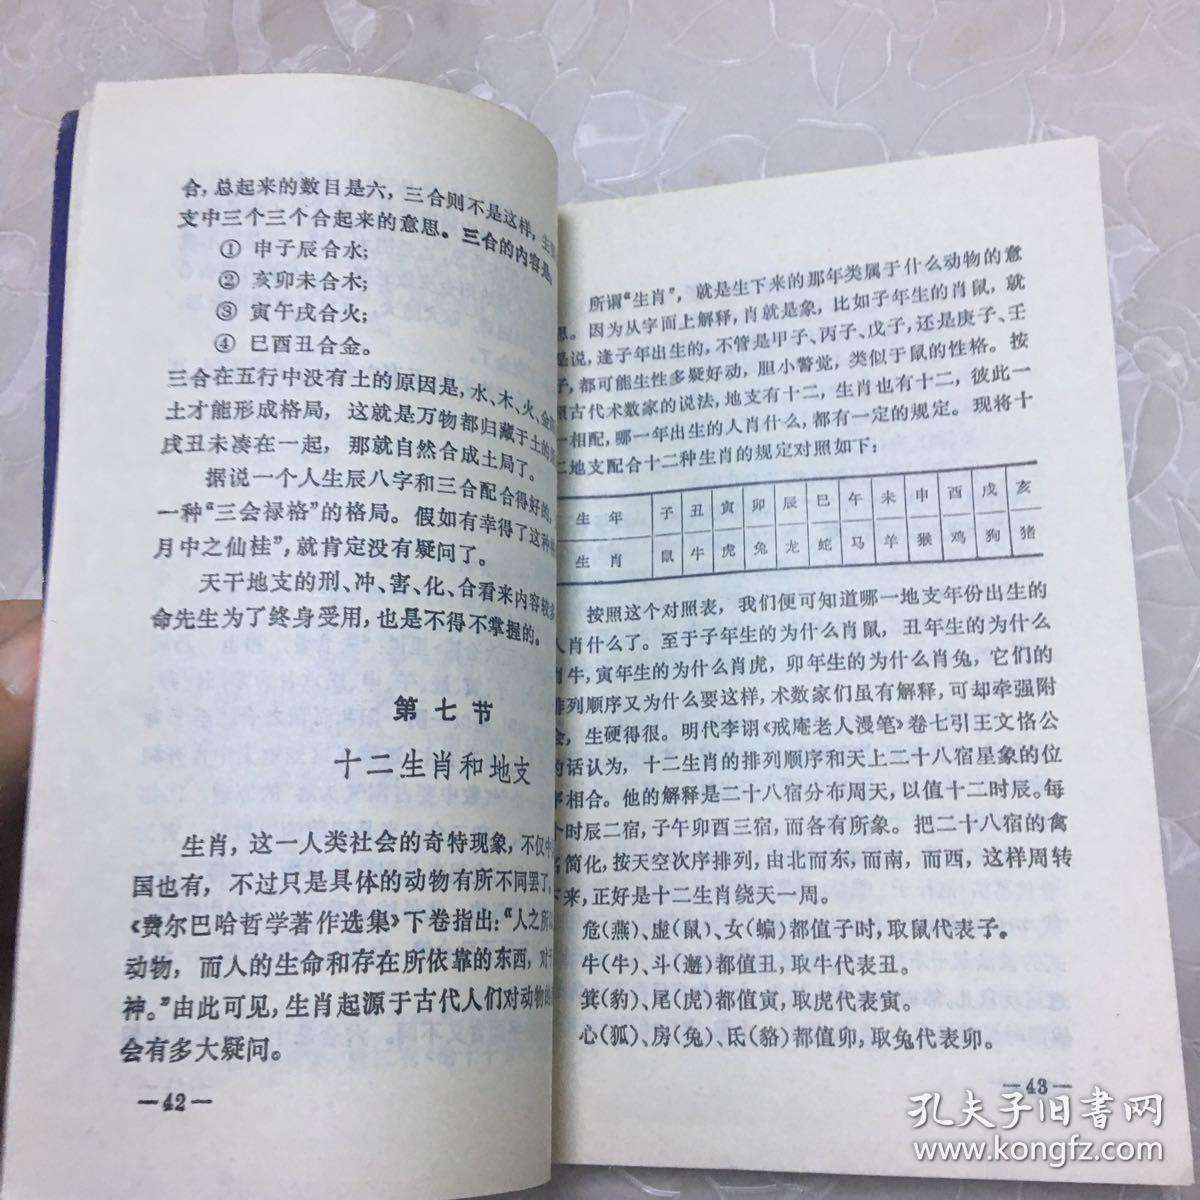 合，总起来的数目是六，三合则不是这样，
支中三个三个合起来的意思。三合的内容是
① 申子辰合水；
② 亥卯未合木；
③ 寅午戌合火；
④ 巳酉丑合金。
三合在五行中没有土的原因是，水、木、火、金
土才能形成格局，这就是万物都归藏于土的
戌丑未凑在一起，那就自然合成土局了。
据说一个人生辰八字和三合配合得好的，
一种“三会禄格”的格局。假如有幸得了这种
月中之仙桂”，就肯定没有疑问了。
天干地支的刑、冲、害、化、合看来内容较多
命先生为了终身受用，也是不得不掌握的。
第七节
十二生肖和地支
生肖，这一人类社会的奇特现象，不仅
国也有，不过只是具体的动物有所不同罢了，
《费尔巴哈哲学著作选集》下卷指出：“人之所
动物，而人的生命和存在所依靠的东西，对
神。”由此可见，生肖起源于古代人们对动物的
会有多大疑问。
—42—
所谓“生肖”，就是生下来的那年类属于什么动物的意
思。因为从字面上解释，肖就是象，比如子年生的肖鼠，就
是说，逢子年出生的，不管是甲子、丙子、戊子，还是庚子、壬
子，都可能生性多疑好动，胆小警觉，类似于鼠的性格。按
照古代术数家的说法，地支有十二，生肖也有十二，彼此一
一相配，哪一年出生的人肖什么，都有一定的规定。现将十
二地支配合十二种生肖的规定对照如下：
生年 子 丑 寅 卯 辰 巳 午 未 申 酉 戌 亥
生肖 鼠 牛 虎 兔 龙 蛇 马 羊 猴 鸡 狗 猪
按照这个对照表，我们便可知道哪一地支年份出生的
人肖什么了。至于子年生的为什么肖鼠，丑年生的为什么
肖牛，寅年生的为什么肖虎，卯年生的为什么肖兔，它们的
排列顺序又为什么要这样，术数家们虽有解释，可却牵强附
会，生硬得很。明代李诩《戒庵老人漫笔》卷七引王文恪公
的话认为，十二生肖的排列顺序和天上二十八宿星象的位
序相合。他的解释是二十八宿分布周天，以值十二时辰。每
个时辰二宿，子午卯酉三宿，而各有所象。把二十八宿的禽
名简化，按天空次序排列，由北而东，而南，而西，这样周转
下来，正好是十二生肖绕天一周。
危（燕）、虚（鼠）、女（蝙）都值子时，取鼠代表子。
牛（牛）、斗（邂）都值丑，取牛代表丑。
箕（豹）、尾（虎）都值寅，取虎代表寅。
心（狐）、房（兔）、氐（貉）都值卯，取兔代表卯。
—43—
孔夫子旧书网
www.kongfz.com